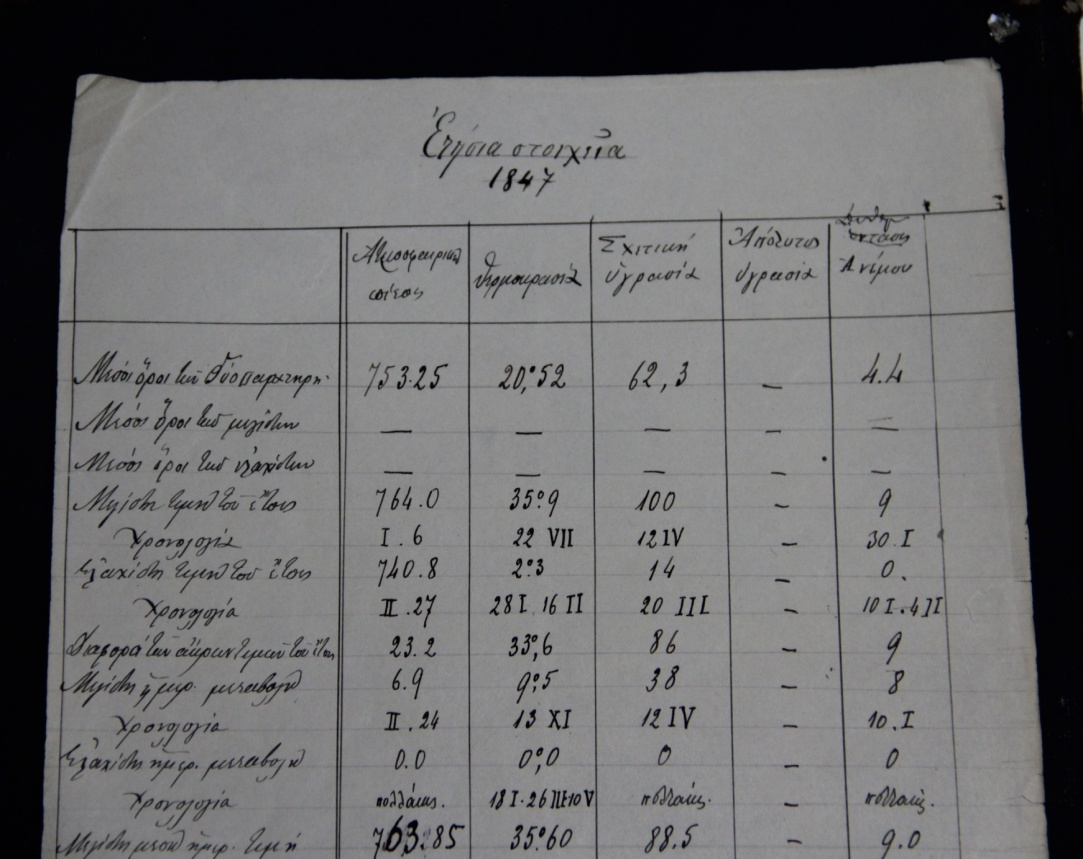 Ἐτήσια στοιχεῖα
1847
Ἀτμοσφαιρική πίεσις θερμοκρασία Σχετική ὑγρασία Ἀπόλυτος ὑγρασία Ἀνέμου
Μέσοι ὅροι τῶν 753.25 20,°52 62,3 — 4.4
Μέσοι ὅροι τῶν μεγίστων — — — — —
Μέσοι ὅροι τῶν ἐλαχίστων — — — — —
Μεγίστη τιμὴ τοῦ ἔτους 764.0 35°.9 100 — 9
Χρονολογία I.6 22 VII 12 IV — 30.I
Ἐλαχίστη τιμὴ τοῦ ἔτους 740.8 2°.3 14 — 0.
Χρονολογία II.27 28 I. 16 II 20 III — 10 I.4 II
Διαφορὰ τῶν ἄκρων τιμῶν τοῦ ἔτους 23.2 33,°6 86 — 9
Μεγίστη ἡμερ. μεταβολὴ 6.9 9°.5 38 — 8
Χρονολογία II.24 13 XI 12 IV — 10.I
Ἐλαχίστη ἡμερ. μεταβολὴ 0.0 0°,0 0 — 0
Χρονολογία πολλάκις. 18 I. 26 πολλάκις. — πολλάκις.
Μεγίστη μέση ἡμερ. τιμή 763.85 35°.60 88.5 — 9.0